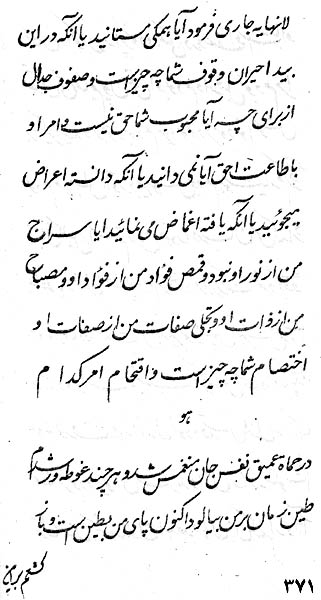 لانهایه جاری فرمود آیا بهمکی مستانید یا آنکه در این
بیدا حیران وقوف شما چه چیز است و صفوف جدال
از برای چه آیا محبوب شما حق نیست و امر او
باطاعت احق آیا نمی دانید یا آنکه دانسته اعراض
میجوئید یا آنکه یافته اغماض می نمائید ایا سراج
من از نور او نبود و قمص فؤاد من از فؤاد او و مصباح
من از ذات او و تجلی صفات من از صفات او
اختصام شما چه چیز است و اقتحام امر کدام
هو
در حماة عمیق نفس جان منغمس شد و هر چند غوطه ور شدم
طین زمان بر من بیالود اکنون پای من بطین است و باز
۳۷۱